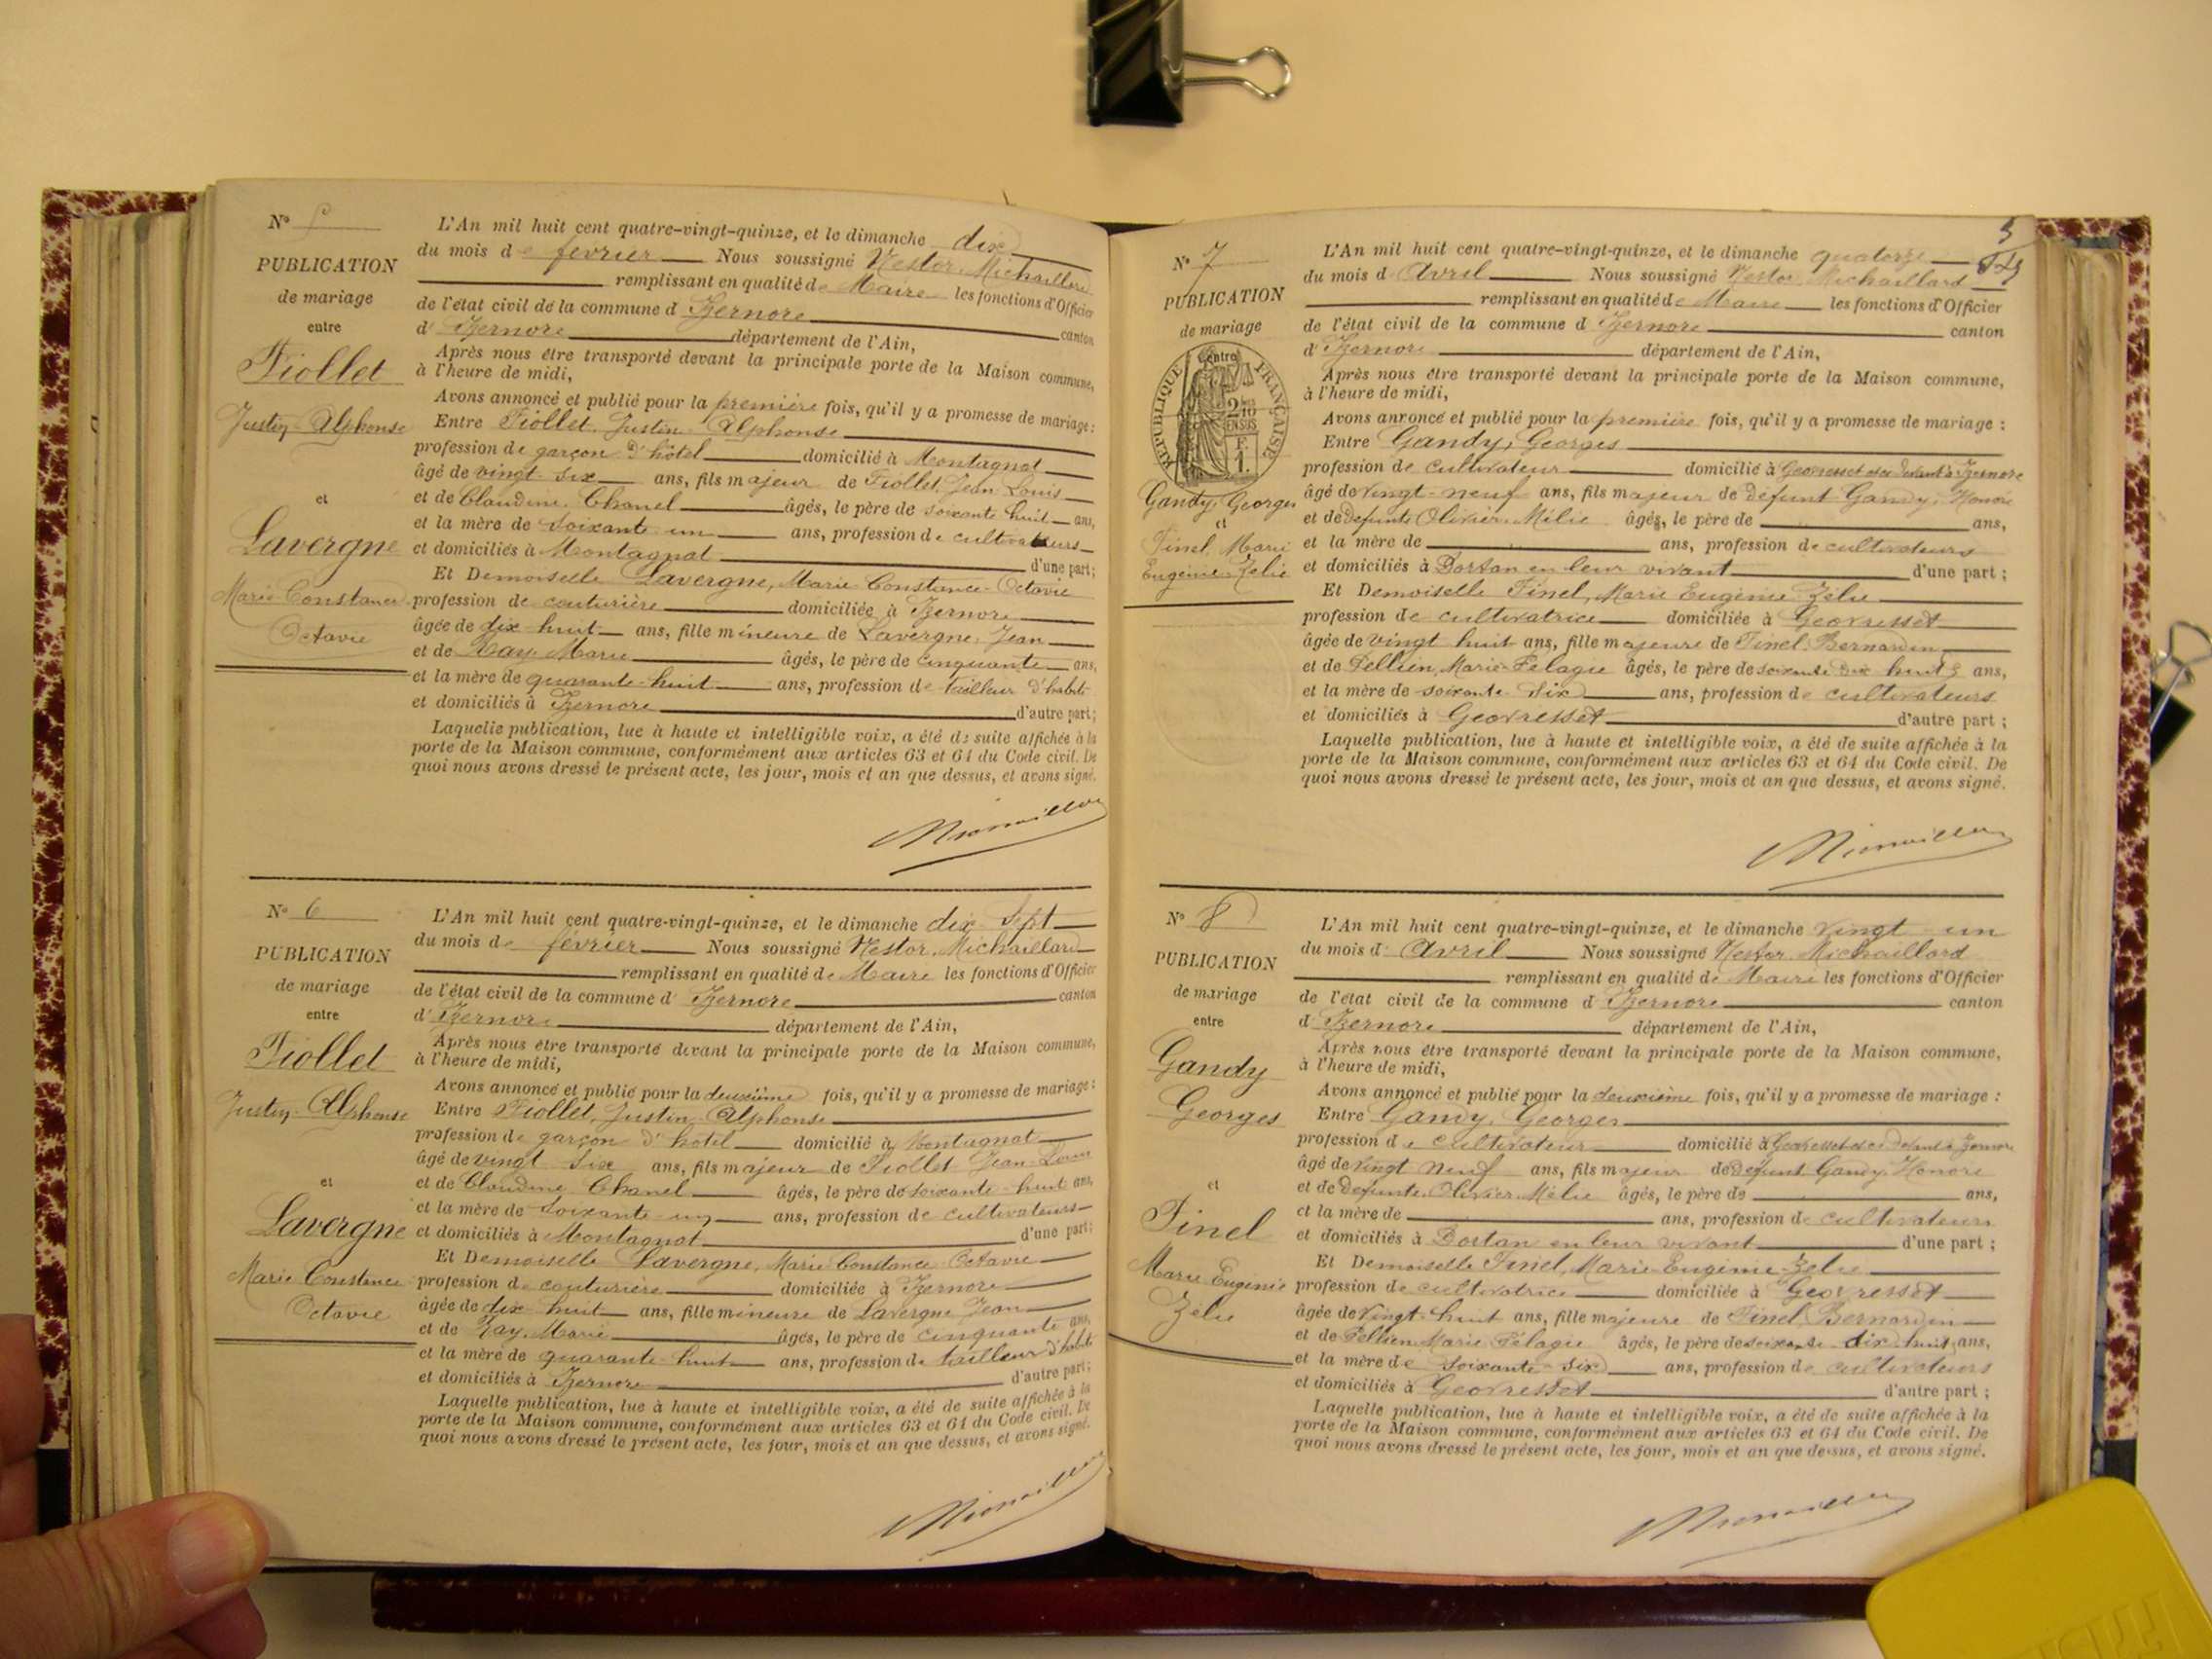 N° 5
PUBLICATION
de mariage
entre
Fiollet
Justin Alphonse
et
Lavergne
Marie Constance
Octavie
L'An mil huit cent quatre-vingt-quinze, et le dimanche dix
du mois de février Nous soussigné Nestor Michaillard
remplissant en qualité de Maire les fonctions d'Officier
de l'état civil de la commune d'Izernore canton
d'Izernore département de l'Ain,
Après nous être transporté devant la principale porte de la Maison commune,
à l'heure de midi,
Avons annoncé et publié pour la première fois, qu'il y a promesse de mariage :
Entre Fiollet, Justin Alphonse
profession de garçon d'hôtel domicilié à Montagnat
âgé de vingt six ans, fils majeur de Fiollet, Jean Louis
et de Claudine Chanel âgés, le père de soixante huit ans,
et la mère de soixante un ans, profession de cultivateurs
et domiciliés à Montagnat d'une part;
Et Demoiselle Lavergne, Marie Constance Octavie
profession de couturière domiciliée à Izernore
âgée de dix huit ans, fille mineure de Lavergne, Jean
et de Marie âgés, le père de cinquante ans,
et la mère de quarante huit ans, profession de tailleur d'habits
et domiciliés à Izernore d'autre part;
Laquelle publication, lue à haute et intelligible voix, a été de suite affichée à la
porte de la Maison commune, conformément aux articles 63 et 64 du Code civil. De
quoi nous avons dressé le présent acte, les jour, mois et an que dessus, et avons signé.
N° 6
PUBLICATION
de mariage
entre
Fiollet
Justin Alphonse
et
Lavergne
Marie Constance
Octavie
L'An mil huit cent quatre-vingt-quinze, et le dimanche dix sept
du mois de février Nous soussigné Nestor Michaillard
remplissant en qualité de Maire les fonctions d'Officier
de l'état civil de la commune d'Izernore canton
d'Izernore département de l'Ain,
Après nous être transporté devant la principale porte de la Maison commune,
à l'heure de midi,
Avons annoncé et publié pour la deuxième fois, qu'il y a promesse de mariage :
Entre Fiollet, Justin Alphonse
profession de garçon d'hôtel domicilié à Montagnat
âgé de vingt six ans, fils majeur de Fiollet Jean Louis
et de Claudine Chanel âgés, le père de soixante huit ans,
et la mère de soixante un ans, profession de cultivateurs
et domiciliés à Montagnat d'une part;
Et Demoiselle Lavergne, Marie Constance Octavie
profession de couturière domiciliée à Izernore
âgée de dix huit ans, fille mineure de Lavergne Jean
et de Marie âgés, le père de cinquante ans,
et la mère de quarante huit ans, profession de tailleur d'habits
et domiciliés à Izernore d'autre part;
Laquelle publication, lue à haute et intelligible voix, a été de suite affichée à la
porte de la Maison commune, conformément aux articles 63 et 64 du Code civil. De
quoi nous avons dressé le présent acte, les jour, mois et an que dessus, et avons signé.
5
N° 7
PUBLICATION
de mariage
entre
RÉPUBLIQUE FRANÇAISE
2/10
EN SUS
F
1.
Gandy, Georges
et
Tinel, Marie
Eugénie Zélie
L'An mil huit cent quatre-vingt-quinze, et le dimanche quatorze
du mois d'Avril Nous soussigné Nestor Michaillard
remplissant en qualité de Maire les fonctions d'Officier
de l'état civil de la commune d'Izernore canton
d'Izernore département de l'Ain,
Après nous être transporté devant la principale porte de la Maison commune,
à l'heure de midi,
Avons annoncé et publié pour la première fois, qu'il y a promesse de mariage :
Entre Gandy, Georges
profession de cultivateur domicilié à Geovresset et ci devant à Izernore
âgé de vingt-neuf ans, fils majeur de défunt Gandy, Honoré
et de défunte Olivier Mélie âgés, le père de ans,
et la mère de ans, profession de cultivateurs
et domiciliés à Dortan en leur vivant d'une part ;
Et Demoiselle Tinel, Marie Eugénie Zélie
profession de cultivatrice domiciliée à Geovresset
âgée de vingt huit ans, fille majeure de Tinel Bernardin
et de Pellien, Marie-Pélagie âgés, le père de soixante dix huit ans,
et la mère de soixante six ans, profession de cultivateurs
et domiciliés à Geovresset d'autre part ;
Laquelle publication, lue à haute et intelligible voix, a été de suite affichée à la
porte de la Maison commune, conformément aux articles 63 et 64 du Code civil. De
quoi nous avons dressé le présent acte, les jour, mois et an que dessus, et avons signé.
N° 8
PUBLICATION
de mariage
entre
Gandy
Georges
et
Tinel
Marie Eugénie
Zélie
L'An mil huit cent quatre-vingt-quinze, et le dimanche vingt un
du mois d'Avril Nous soussigné Nestor Michaillard
remplissant en qualité de Maire les fonctions d'Officier
de l'état civil de la commune d'Izernore canton
d'Izernore département de l'Ain,
Après nous être transporté devant la principale porte de la Maison commune,
à l'heure de midi,
Avons annoncé et publié pour la deuxième fois, qu'il y a promesse de mariage :
Entre Gandy, Georges
profession de cultivateur domicilié à Geovresset et ci devant à Izernore
âgé de vingt neuf ans, fils majeur de défunt Gandy Honoré
et de défunte Olivier Mélie âgés, le père de ans,
et la mère de ans, profession de cultivateurs
et domiciliés à Dortan en leur vivant d'une part ;
Et Demoiselle Tinel, Marie-Eugénie-Zélie
profession de cultivatrice domiciliée à Geovresset
âgée de vingt-huit ans, fille majeure de Tinel Bernardin
et de Pellien Marie Pélagie âgés, le père de soixante dix huit ans,
et la mère de soixante six ans, profession de cultivateurs
et domiciliés à Geovresset d'autre part ;
Laquelle publication, lue à haute et intelligible voix, a été de suite affichée à la
porte de la Maison commune, conformément aux articles 63 et 64 du Code civil. De
quoi nous avons dressé le présent acte, les jour, mois et an que dessus, et avons signé.